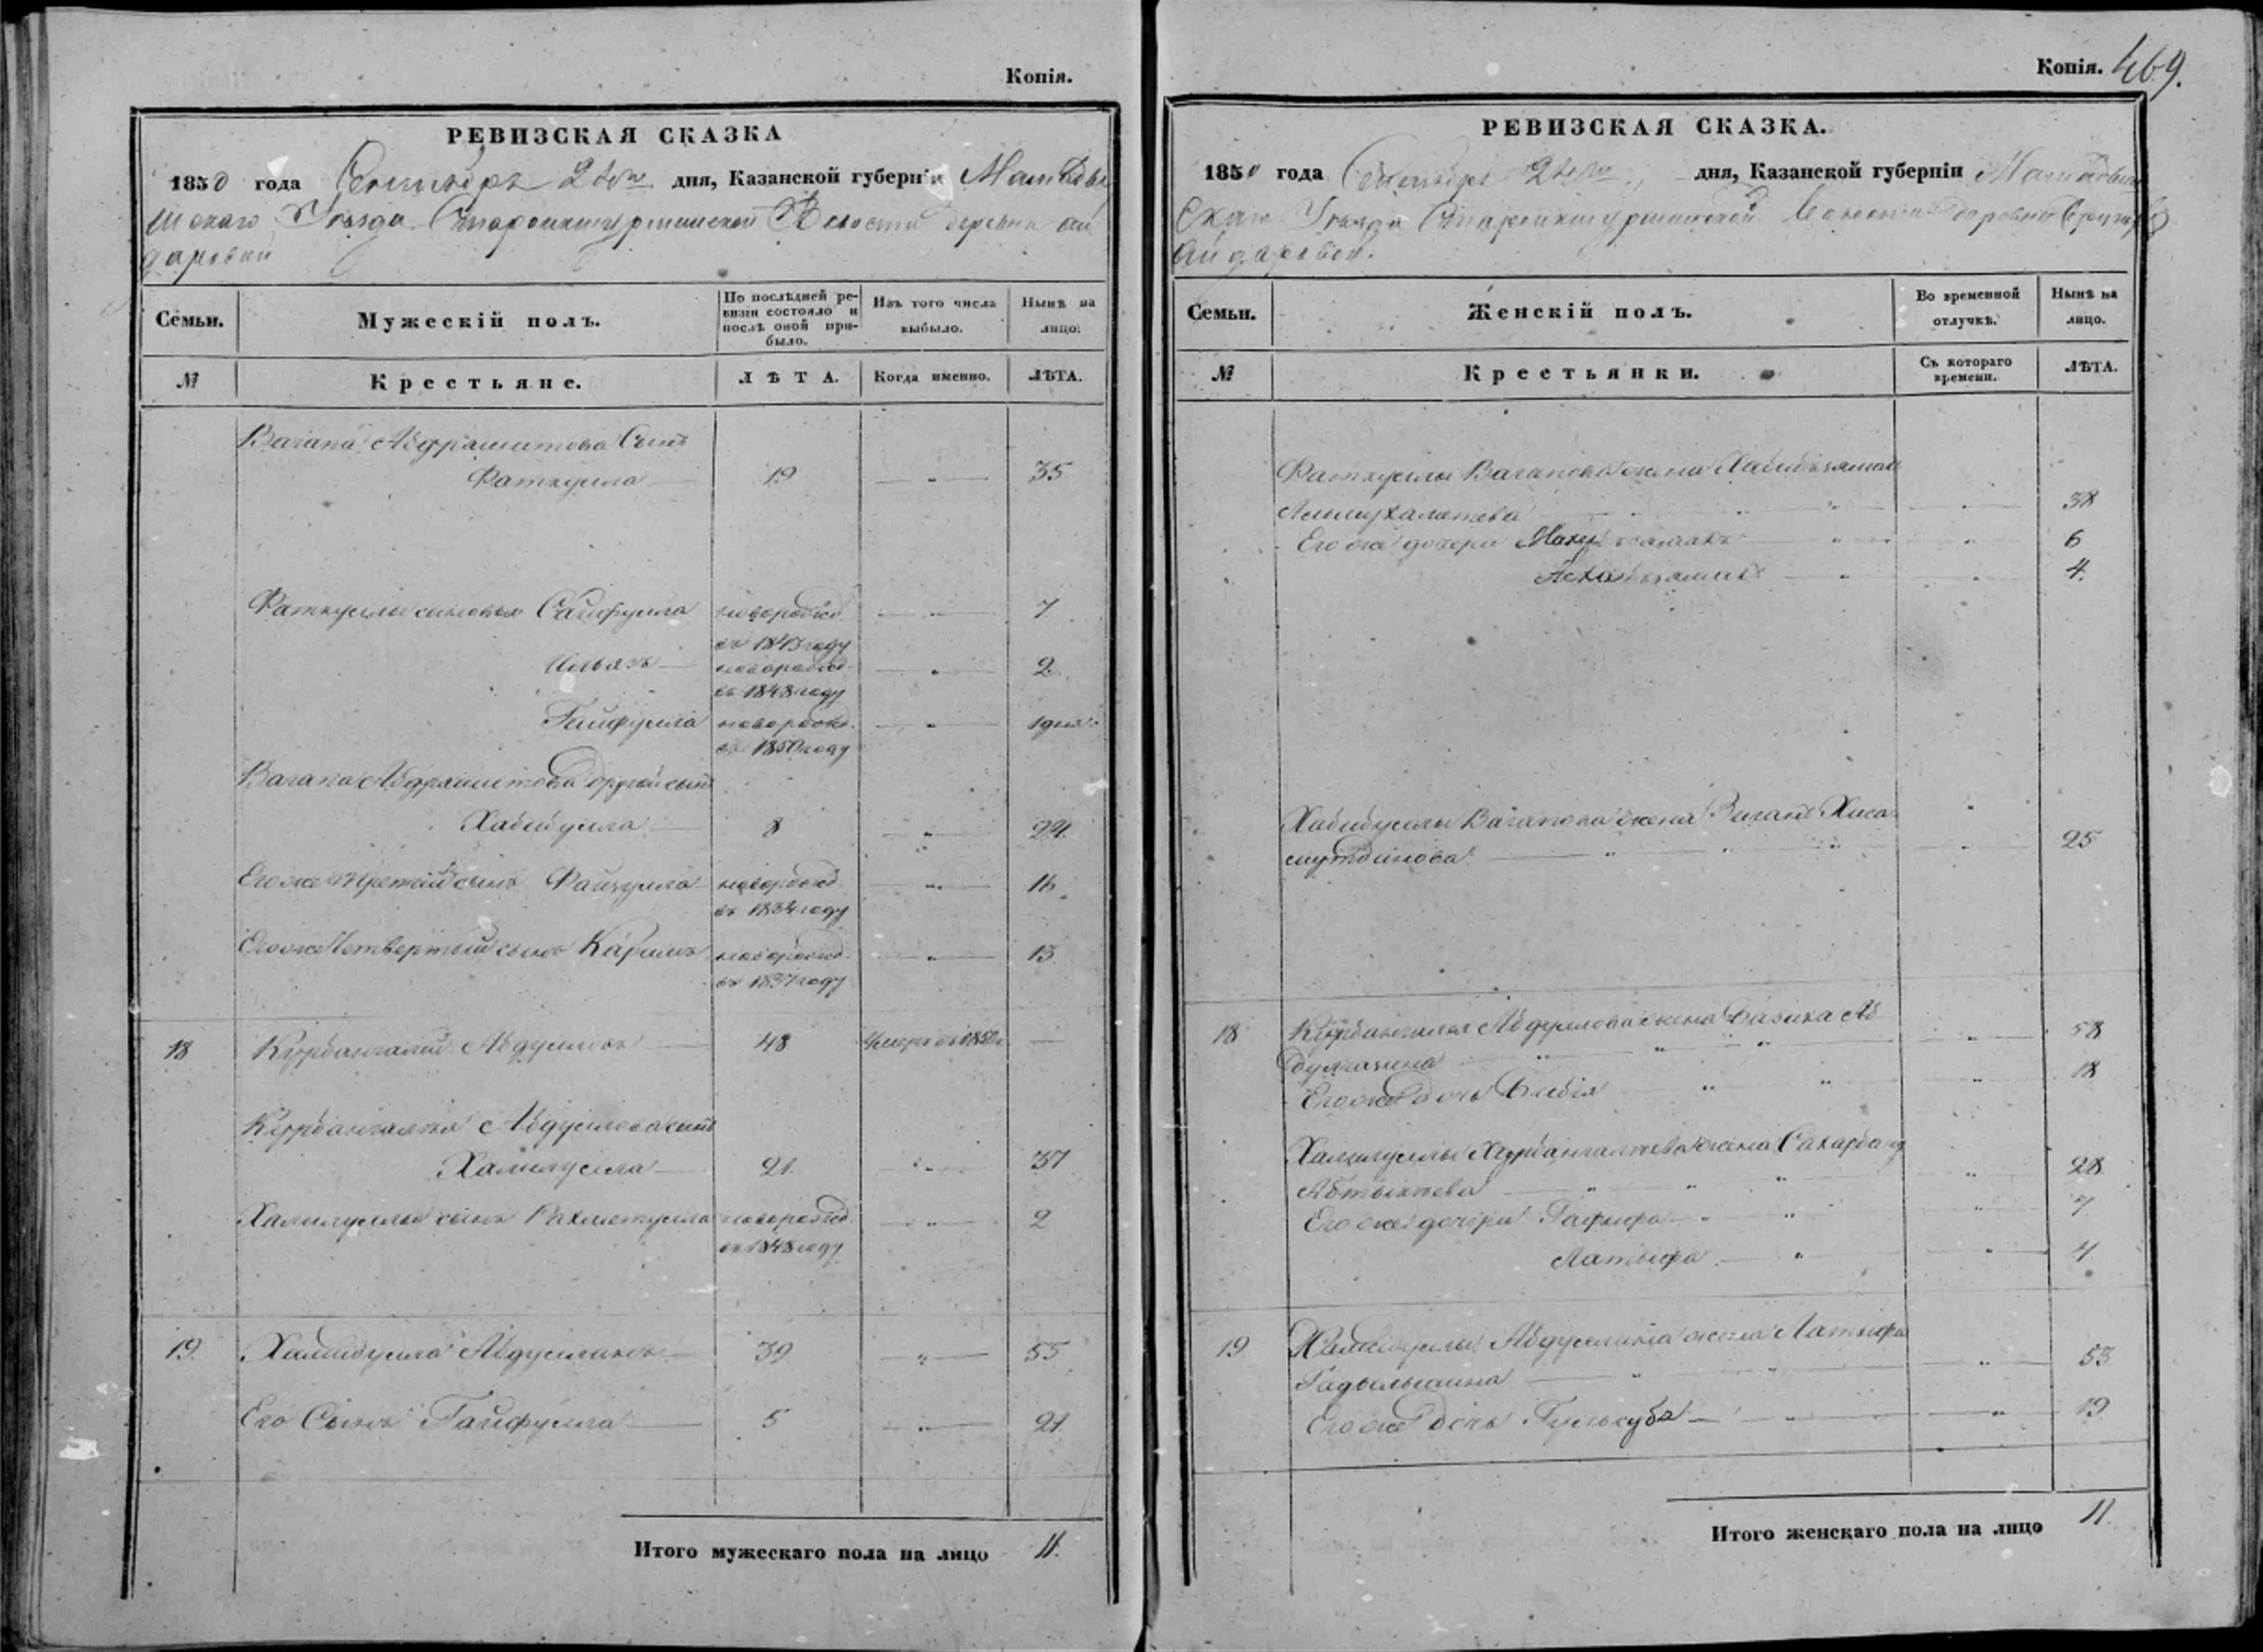 Копія.
РЕВИЗСКАЯ СКАЗКА
1850 года Сентября 2 дня, Казанской губерніи Мамадыш
скаго Уѣзда Волости деревни Ай
даровой
Семьи.
Мужескій полъ.
По послѣдней ре-
визіи состояло и
послѣ оной при-
было.
Изъ того числа
выбыло.
Нынѣ на
лицо:
№
Крестьяне.
ЛѢТА.
Когда именно.
ЛѢТА.
Вагапа Абдрашитова Сынъ
Фаткулла 19 " 35
Фаткуллы сыновья Сайфулла новорожд " 7
въ 1843 году
Ильязъ новорожд " 2
въ 1848 году
Гайфулла новорожд. "
въ 1850 году
Вагапа Абдрашитова другой сынъ
Хабибулла 8 " 24
Его же третій сынъ Файзулла новорожд " 16
въ 1834 году
Его же Четвертый сынъ Каримъ новорожд. " 13
въ 1837 году
18 Курбангалій Абдуловъ 48 Умеръ въ 1850
Курбангалея Абдулова сынъ
Халиулла 21 " 37
Халиуллы сынъ Рахметулла новорожд " 2
въ 1848 году
19. Абдуллинъ 39 " 55
Его Сынъ Гайфулла 5 " 21
Итого мужескаго пола на лицо 11.
Копія. 469.
РЕВИЗСКАЯ СКАЗКА.
1850 года Сентября 2 дня, Казанской губерніи Мамадыш
скаго Уѣзда Волости деревни
Айдаровой.
Семьи.
Женскій полъ.
Во временной
отлучкѣ.
Нынѣ на
лицо.
№
Крестьянки.
Съ котораго
времени.
ЛѢТА.
Фаткуллы Вагапова жена
" 38
Его же дочери " " 6
" " 4.
Хабибуллы Вагапова жена Хиса
мутдинова " " 25
18 Курбангалея Абдулова жена Базиха Аб
" " 58
Его же дочь Бибія " " 18
Курбангалеева жена
" " 28
Его же дочери " " 7
Латыфа " " 4
19. жена Латыфа
" " 53
Его же дочь " " 19
Итого женскаго пола на лицо 11.